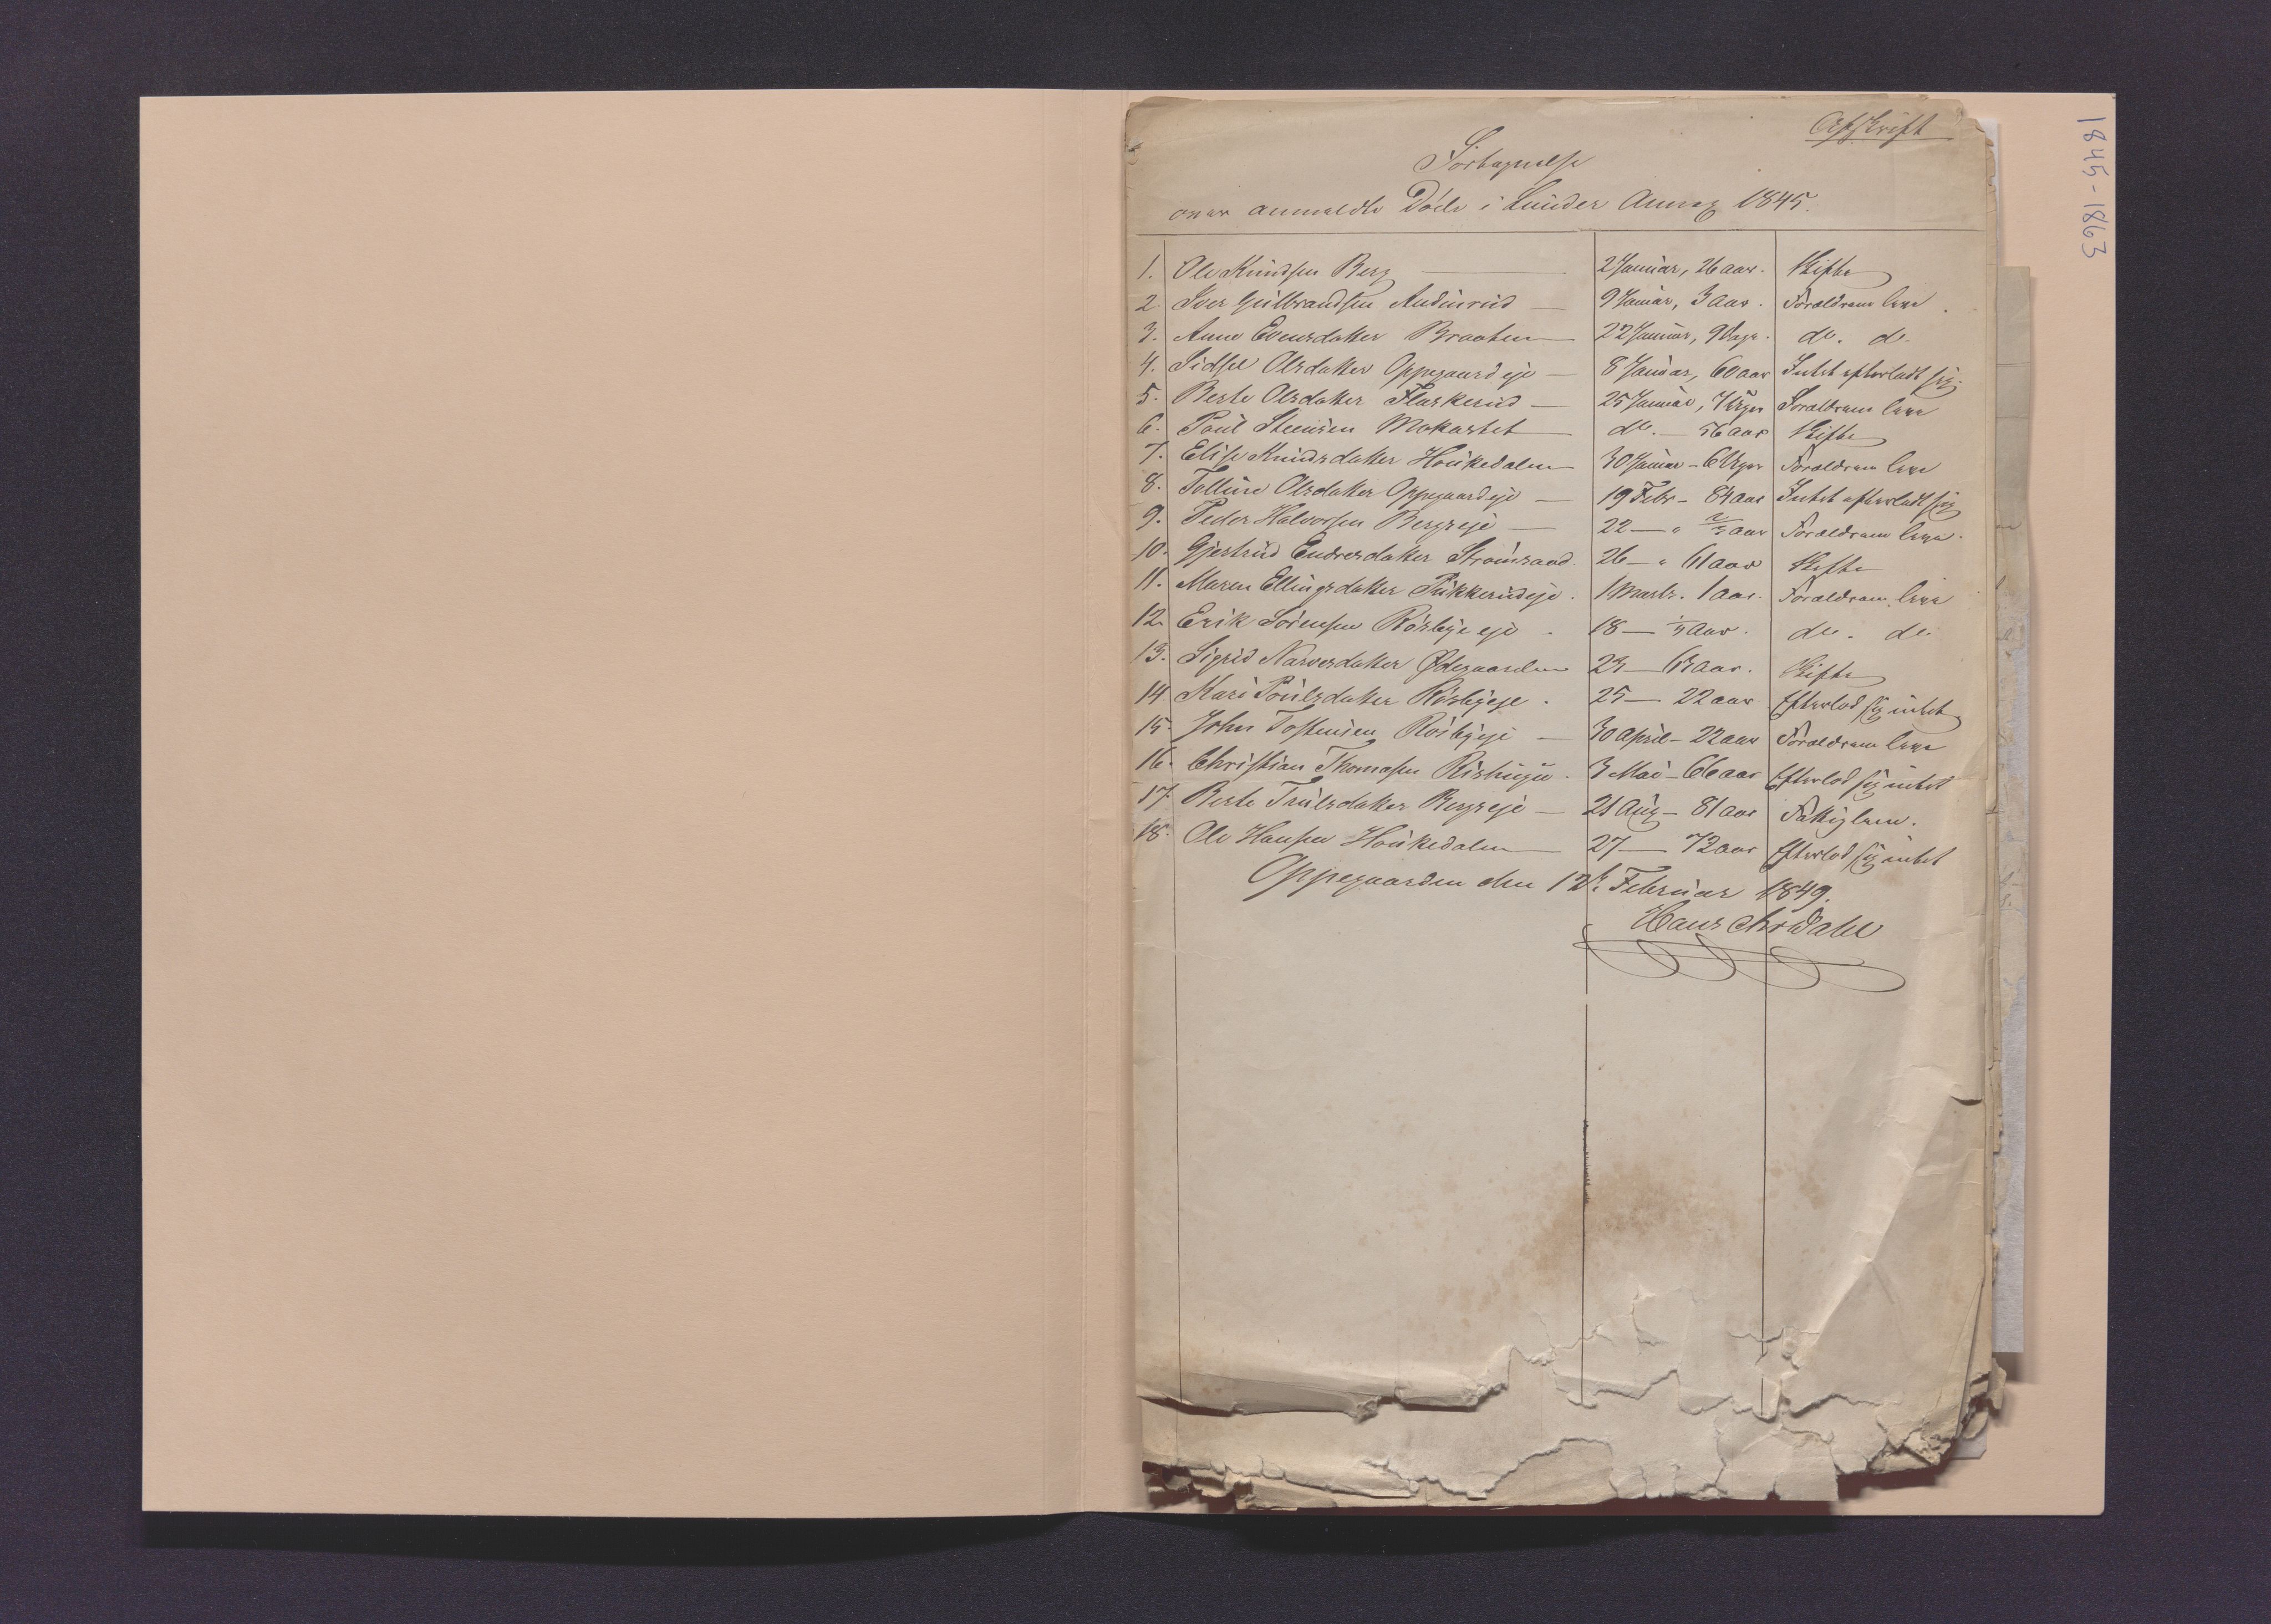 1845-1863
Afskrift
Fortegnelse
over anmeldte Døde i Lunder Annex 1845.
1. Ole Knudsen Berg — 2 Januar, 26 aar. Skifte
2. Iver Gulbrandsen Audunrud — 9 Januar, 3 aar. Forældrene leve.
3. Anne Evensdatter Braaten — 22 Januar, 9 Dage. do. do.
4. Sidsel Olsdatter Oppegaardeje — 8 Januar, 60 aar Intet efterladt sig.
5. Berte Olsdatter Flaskerud — 25 Januar, 7 Uger Forældrene leve
6. Poul Steensen Mokastet — do. — 56 aar Skifte
7. Elise Knudsdatter Houkedalen — 30 Januar - 6 Uger Forældrene leve
8. Olsdatter Oppegaardeje — 19 Febr - 84 aar Intet efterladt sig
9. Peder Halvorsen Bergseje — 22 — " aar Forældrene leve.
10. Gjertrud Endresdatter Strømsaad. 26 — " 61 aar Skifte
11. Maren Ellingsdatter Pukkerudeje. 1 Marts. 1 aar. Forældrene leve
12. Erik Sørensen Røsbyeeje. 18 — aar. do. do.
13. Sigrid Narvesdatter Ødegaarden 23 — 63 aar. Skifte
14. Kari Poulsdatter Røsbyeje. 25 — 22 aar Efterlod sig intet
15. John Tostensen Røsbyeje — 30 April - 22 aar Forældrene leve
16. Christian Thomasen. 3 Mai - 66 aar Efterlod sig intet
17. Berte Truls­datter Bergseje — 21 Aug - 81 aar Fattiglem.
18. Ole Hansen Houkedalen — 27 — 72 aar Efterlod sig intet
Oppegaarden den 12te Februar 1849.
Hans Chr Dahl